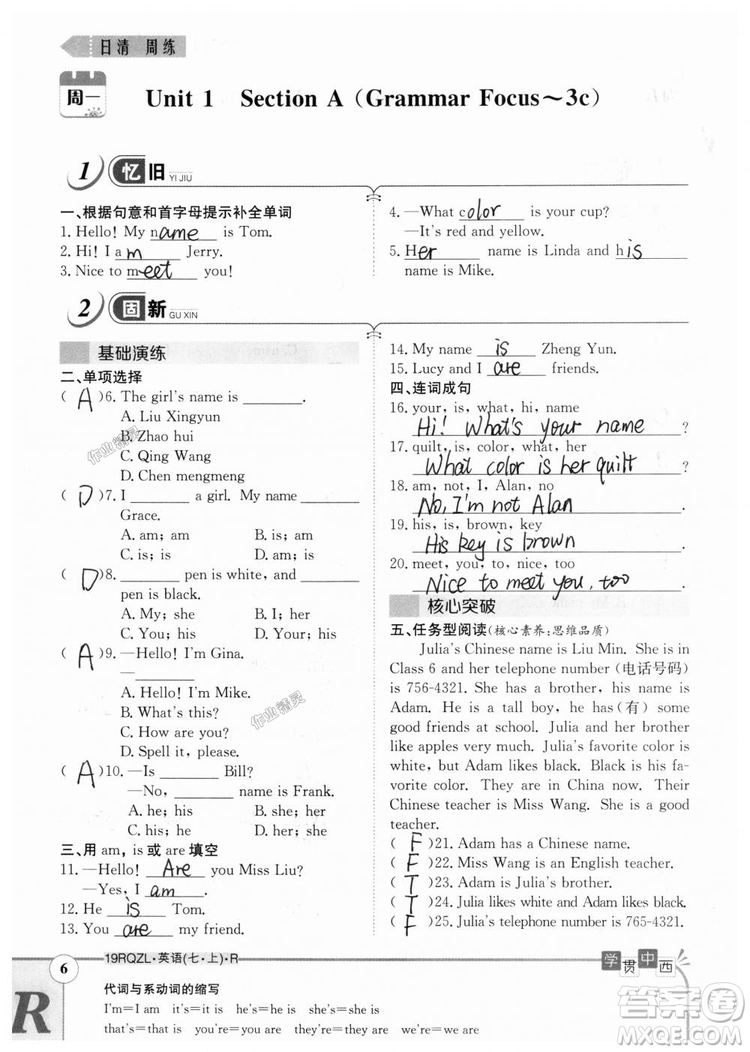 日清 周练
周一
Unit 1 Section A (Grammar Focus～3c)
1 忆旧 YI JIU
一、根据句意和首字母提示补全单词
1. Hello! My name is Tom.
2. Hi! I am Jerry.
3. Nice to meet you!
4. —What color is your cup?
—It's red and yellow.
5. Her name is Linda and his
name is Mike.
2 固新 GU XIN
基础演练
二、单项选择
( A )6. The girl's name is ________.
A. Liu Xingyun
B. Zhao hui
C. Qing Wang
D. Chen mengmeng
( D )7. I ________ a girl. My name ________
Grace.
A. am; am B. is; am
C. is; is D. am; is
( D )8. ________ pen is white, and ________
pen is black.
A. My; she B. I; her
C. You; his D. Your; his
( A )9. —Hello! I'm Gina.
—________.
A. Hello! I'm Mike.
B. Thank you!
C. How are you?
D. Spell it, please.
( A )10. —Is ________ Bill?
—No, ________ name is Frank.
A. he; his B. she; her
C. his; he D. her; she
三、用 am, is 或 are 填空
11. —Hello! Are you Miss Liu?
—Yes, I am.
12. He is Tom.
13. You are my friend.
14. My name is Zheng Yun.
15. Lucy and I are friends.
四、连词成句
16. your, is, what, hi, name
Hi! What's your name ?
17. quilt, is, color, what, her
What color is her quilt ?
18. am, not, I, Alan, no
No, I'm not Alan .
19. his, is, brown, key
His key is brown .
20. meet, you, to, nice, too
Nice to meet you, too .
核心突破
五、任务型阅读(核心素养:思维品质)
Julia's Chinese name is Liu Min. She is in
Class 6 and her telephone number (电话号码)
is 756-4321. She has a brother, his name is
Adam. He is a tall boy, he has(有) some
good friends at school. Julia and her brother
like apples very much. Julia's favorite color is
white, but Adam likes black. Black is his fa-
vorite color. They are in China now. Their
Chinese teacher is Miss Wang. She is a good
teacher.
( F )21. Adam has a Chinese name.
( F )22. Miss Wang is an English teacher.
( T )23. Adam is Julia's brother.
( T )24. Julia likes white and Adam likes black.
( F )25. Julia's phone number is 765-4321.
6
19RQZL·英语(七·上)·R
学贯中西
R
代词与系动词的缩写
I'm=I am it's=it is he's=he is she's=she is
that's=that is you're=you are they're=they are we're=we are
作业精灵
作业精灵
答案圈
MXQE.COM